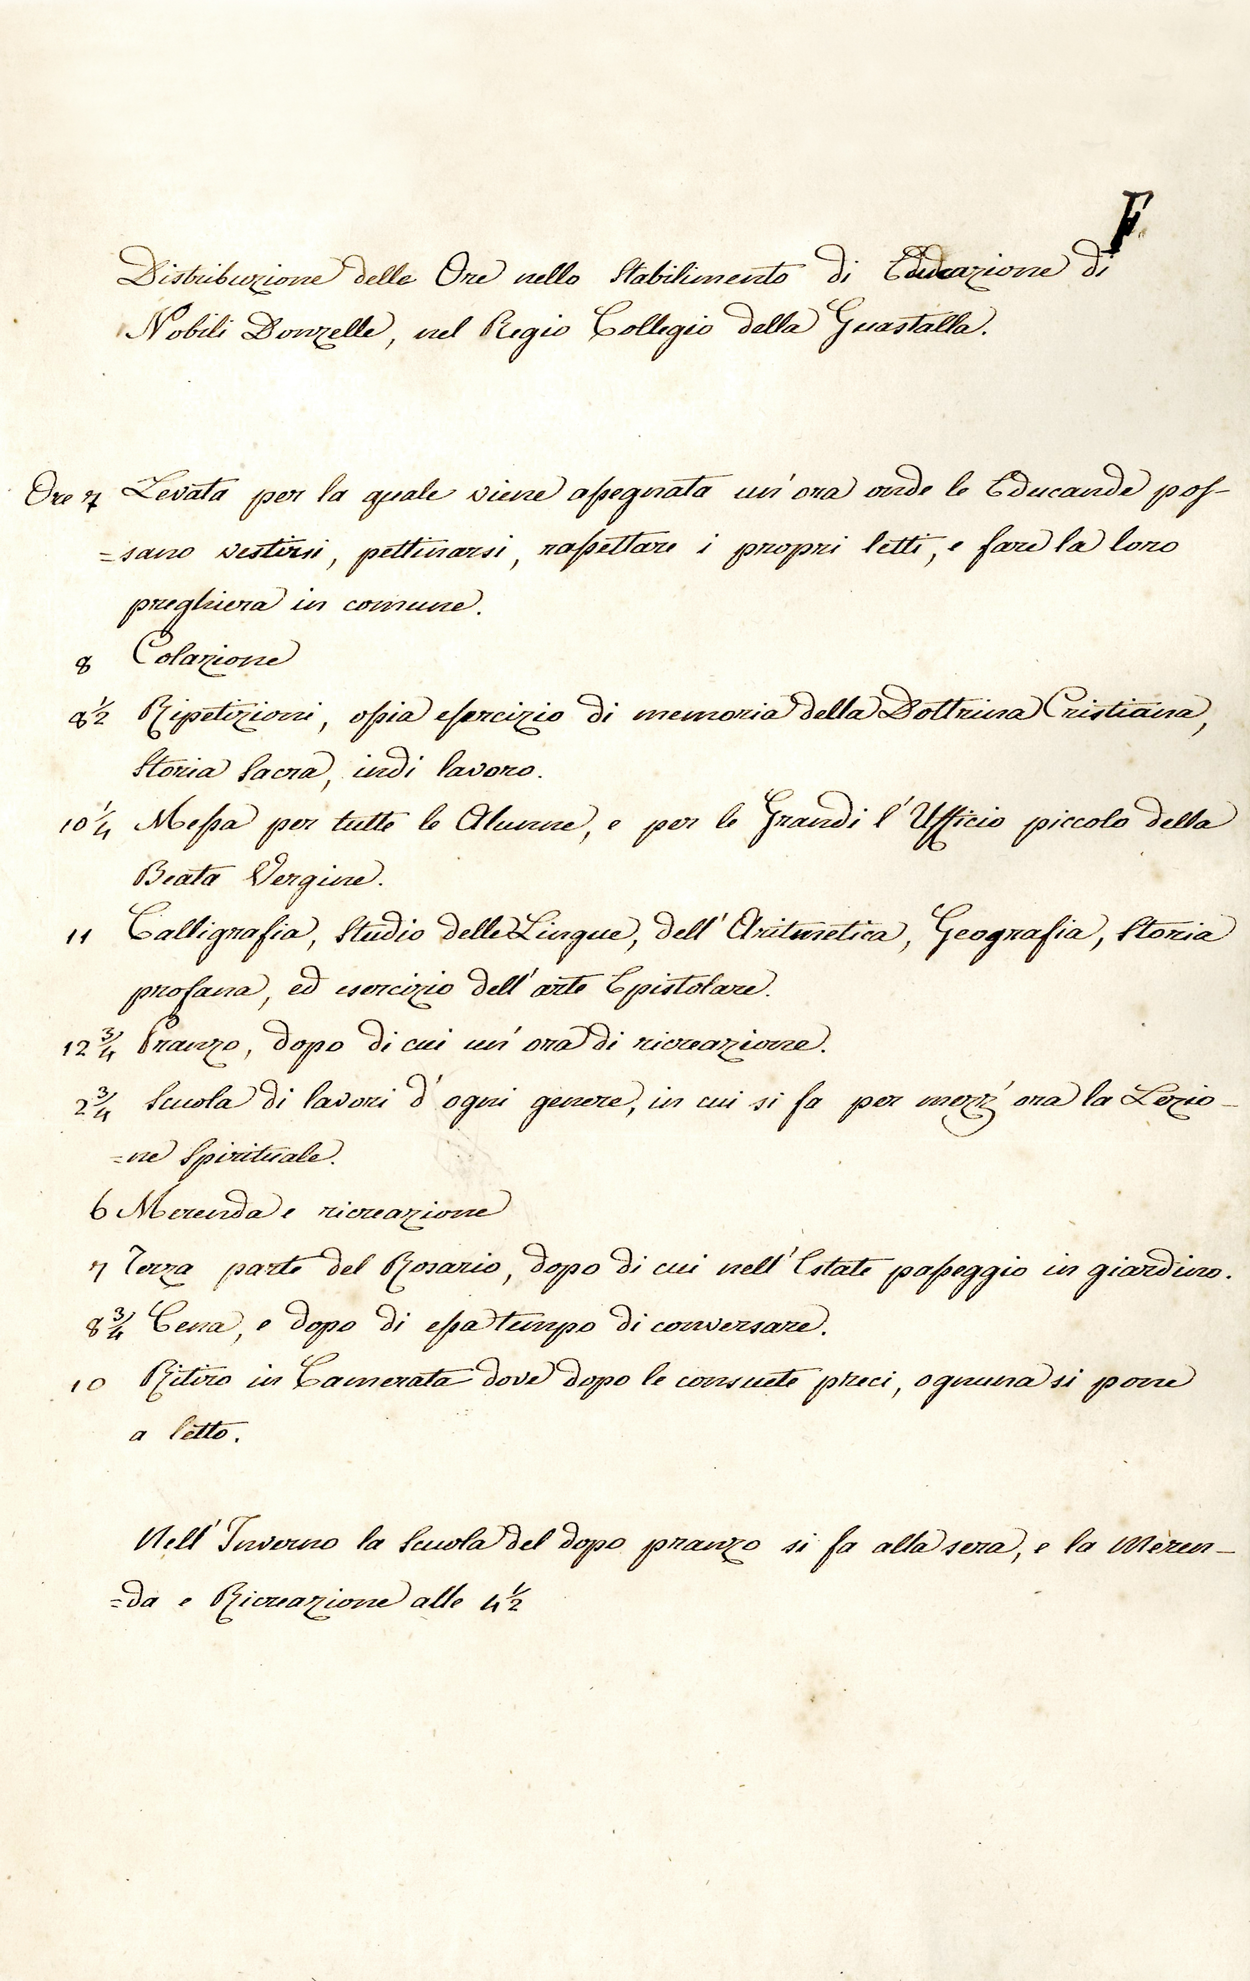 F
Distribuzione delle Ore nello Stabilimento di Educazione di
Nobili Donzelle, nel Regio Collegio della Guastalla.
Ore 7 Levata per la quale viene assegnata un'ora onde le Educande pos-
=sano vestirsi, pettinarsi, rassettare i propri letti, e fare la loro
preghiera in comune.
8 Colazione
8 1/2 Ripetizioni, ossia esercizio di memoria della Dottrina Cristiana,
Storia Sacra, indi lavoro.
10 1/4 Messa per tutte le Alunne, e per le Grandi l'Ufficio piccolo della
Beata Vergine.
11 Calligrafia, Studio delle Lingue, dell'Aritmetica, Geografia, Storia
profana, ed esercizio dell'arte Epistolare.
12 3/4 Pranzo, dopo di cui un'ora di ricreazione.
2 3/4 Scuola di lavori d'ogni genere, in cui si fa per mezz'ora la Lezio-
=ne Spirituale.
6 Merenda e ricreazione
7 Terza parte del Rosario, dopo di cui nell'Estate passeggio in giardino.
8 3/4 Cena, e dopo di essa tempo di conversare.
10 Ritiro in Camerata dove dopo le consuete preci, ognuna si pone
a letto.
Nell'Inverno la Scuola del dopo pranzo si fa alla sera, e la Meren-
=da e Ricreazione alle 4 1/2